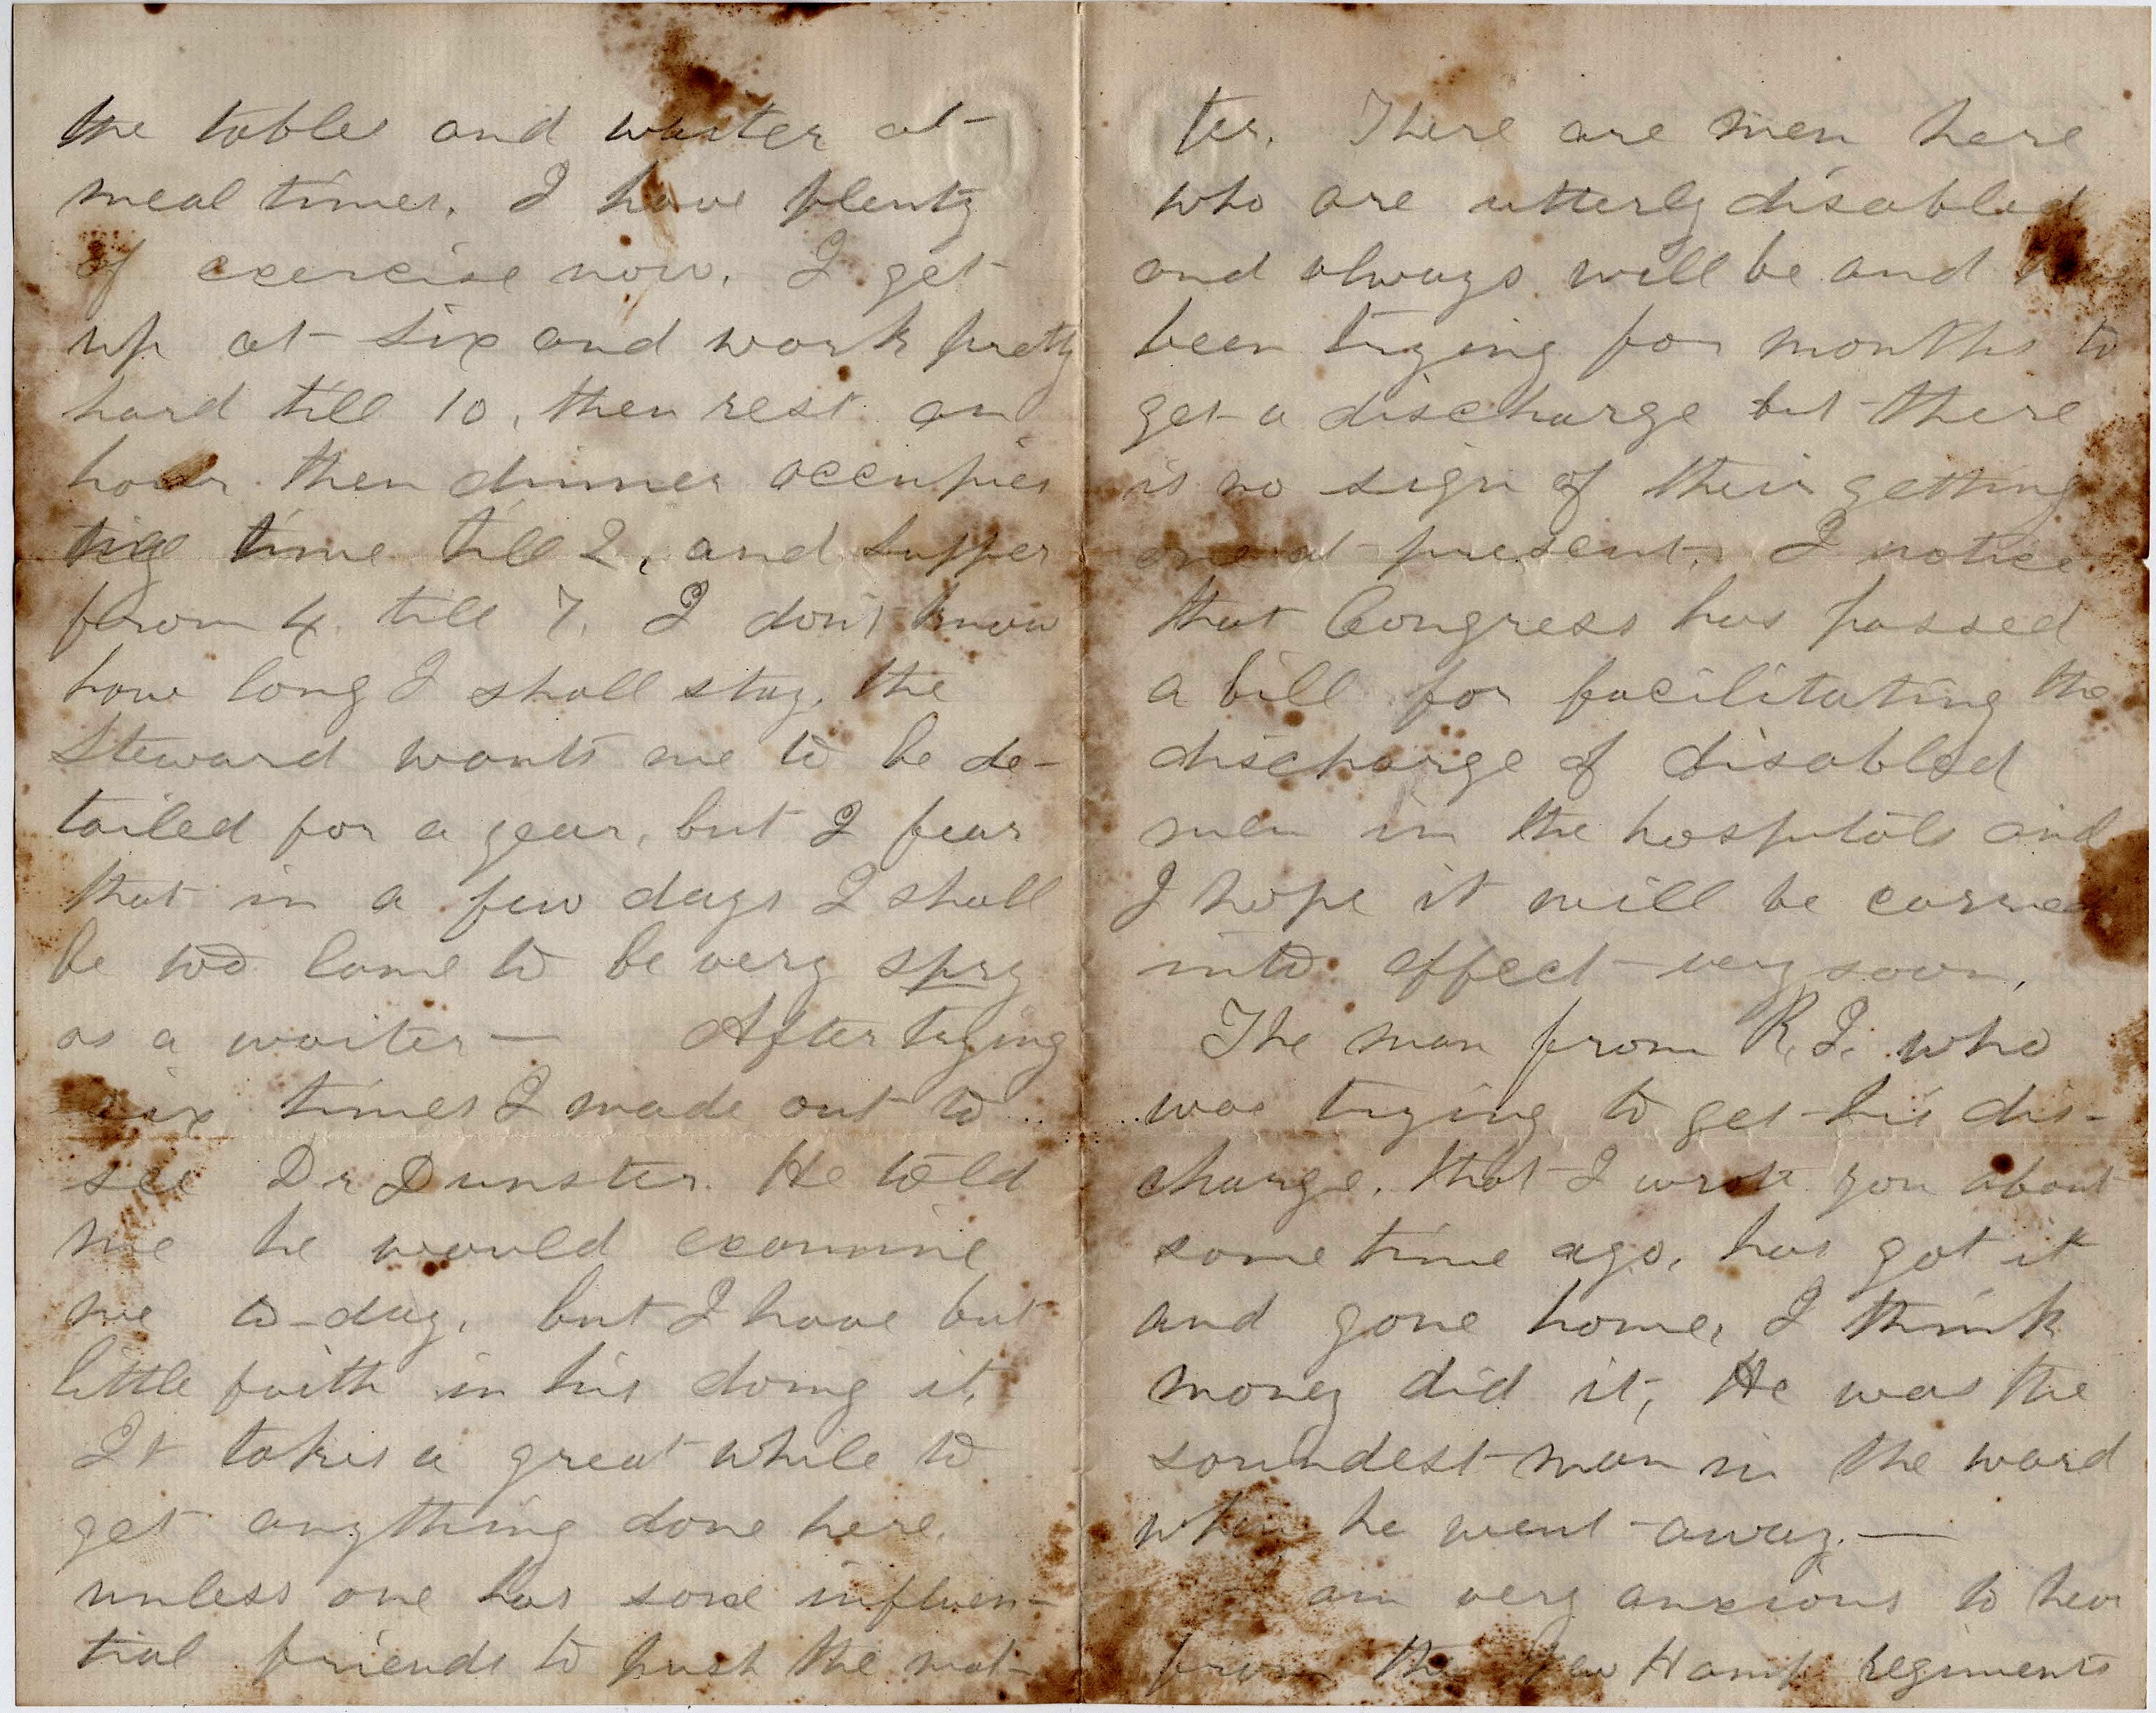 the tables and waiter at
meal times. I have plenty
of exercise now. I get
up at six and work pretty
hard till 10, then rest an
hour then dinner occupies
time till 2, and supper
from 4 till 7. I don't know
how long I shall stay. the
Steward wants me to be de-
tailed for a year, but I fear
that in a few days I shall
be too lame to be very spry
as a waiter — After trying
six times I made out to
see Dr Dunster. He told
me he would examine
me to-day, but I have but
little faith in his doing it.
It takes a great while to
get anything done here.
unless one has some influen-
tial friends to push the mat-
ter. There are men here
who are utterly disabled
and always will be and have
been trying for months to
get a discharge but there
is no sign of their getting
one at present. I notice
that Congress has passed
a bill for facilitating the
discharge of disabled
men in the hospitals and
I hope it will be carried
into effect very soon.
The man from R.I. who
was trying to get his dis-
charge, that I wrote you about
some time ago, has got it
and gone home, I think
money did it, He was the
soundest man in the ward
when he went away. —
am very anxious to hear
from the New Hamp regiments